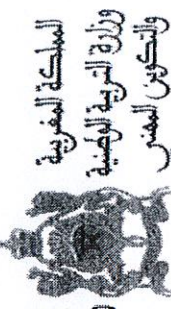 المملكة المغربية
وزارة التربية الوطنية
والتكوين المهني